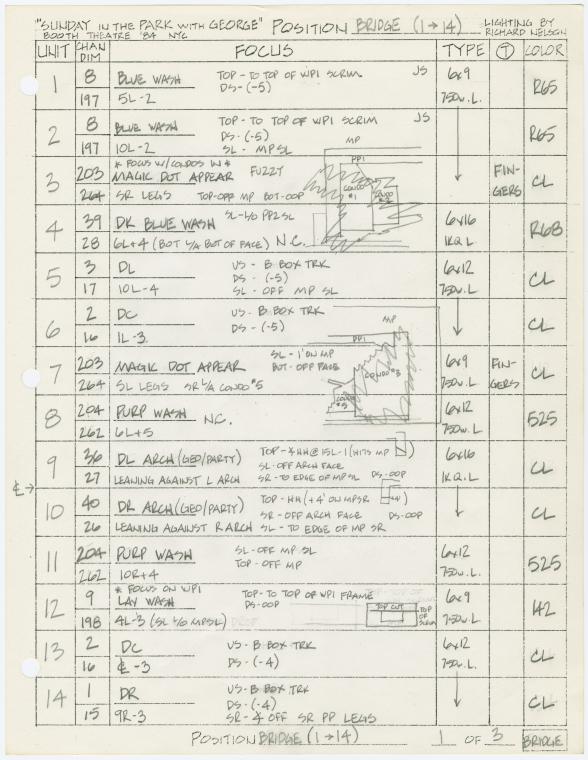 "SUNDAY IN THE PARK WITH GEORGE" POSITION BRIDGE (1→14) LIGHTING BY
BOOTH THEATRE '84 NYC RICHARD NELSON
UNIT CHAN DIM FOCUS TYPE T COLOR
1 8 BLUE WASH TOP - TO TOP OF WP1 SCRIM JS 6x9 R65
197 5L-2 DS - (-5) 750w.L.
2 8 BLUE WASH TOP - TO TOP OF WP1 SCRIM JS R65
DS - (-5)
197 10L-2 SL - MPSL
MP
PP1
* FOCUS W/CONDOS IN *
3 203 MAGIC DOT APPEAR FUZZY FIN- CL
264 SR LEGS TOP-OFF MP BOT-OOP GERS
CONDO #1
4 39 DK BLUE WASH SL-L/O PP2SL 6x16 R68
28 6L+4 (BOT L/A BOT OF FACE) N.C. 1KQ.L
5 3 DL US - B BOX TRK 6x12 CL
DS - (-5)
17 10L-4 SL - OFF MP SL 750w.L
6 2 DC US - B BOX TRK CL
16 1L-3 DS - (-5)
MP
PP1
7 203 MAGIC DOT APPEAR SL - 1' ON MP 6x9 FIN- CL
BOT - OFF FACE
264 SL LEGS SR L/A CONDO #5 750w.L GERS
8 204 PURP WASH N.C. 6x12 525
262 6L+5 750w.L
9 36 DL ARCH (GEO/PARTY) TOP - HH@15L-1 (HITS MP) 6x16 CL
SL - OFF ARCH FACE
27 LEANING AGAINST L ARCH SR - TO EDGE OF MPSL DS-OOP 1KQ.L
℄→
10 40 DR ARCH (GEO/PARTY) TOP - HH (+4' ON MPSR) +4' CL
SR - OFF ARCH FACE DS-OOP
26 LEANING AGAINST R ARCH SL - TO EDGE OF MP SR
11 204 PURP WASH SL-OFF MP SL 6x12 525
TOP - OFF MP
262 10R+4 750w.L.
* FOCUS ON WP1
12 9 LAV WASH TOP - TO TOP OF WP1 FRAME 6x9 142
DS-OOP TOP CUT TOP OF SCRIM
198 4L-3 (SL L/O MPSL) 750w.L
13 2 DC US - B BOX TRK 6x12 CL
16 ℄-3 DS - (-4) 750w.L
14 1 DR US - B BOX TRK CL
DS - (-4)
15 9R-3 SR - OFF SR PP LEGS
POSITION BRIDGE (1→14) 1 OF 3 BRIDGE